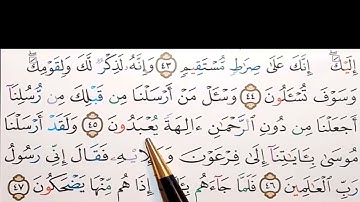 إِلَيۡكَۖ إِنَّكَ عَلَىٰ صِرَٰطٖ مُّسۡتَقِيمٖ ٤٣ وَإِنَّهُۥ لَذِكۡرٞ لَّكَ وَلِقَوۡمِكَۖ
وَسَوۡفَ تُسۡـَٔلُونَ ٤٤ وَسۡـَٔلۡ مَنۡ أَرۡسَلۡنَا مِن قَبۡلِكَ مِن رُّسُلِنَآ
أَجَعَلۡنَا مِن دُونِ ٱلرَّحۡمَٰنِ ءَالِهَةٗ يُعۡبَدُونَ ٤٥ وَلَقَدۡ أَرۡسَلۡنَا
مُوسَىٰ بِـَٔايَٰتِنَآ إِلَىٰ فِرۡعَوۡنَ فَقَالَ إِنِّي رَسُولُ
رَبِّ ٱلۡعَٰلَمِينَ ٤٦ فَلَمَّا جَآءَهُم إِذَا هُم مِّنۡهَا يَضۡحَكُونَ ٤٧